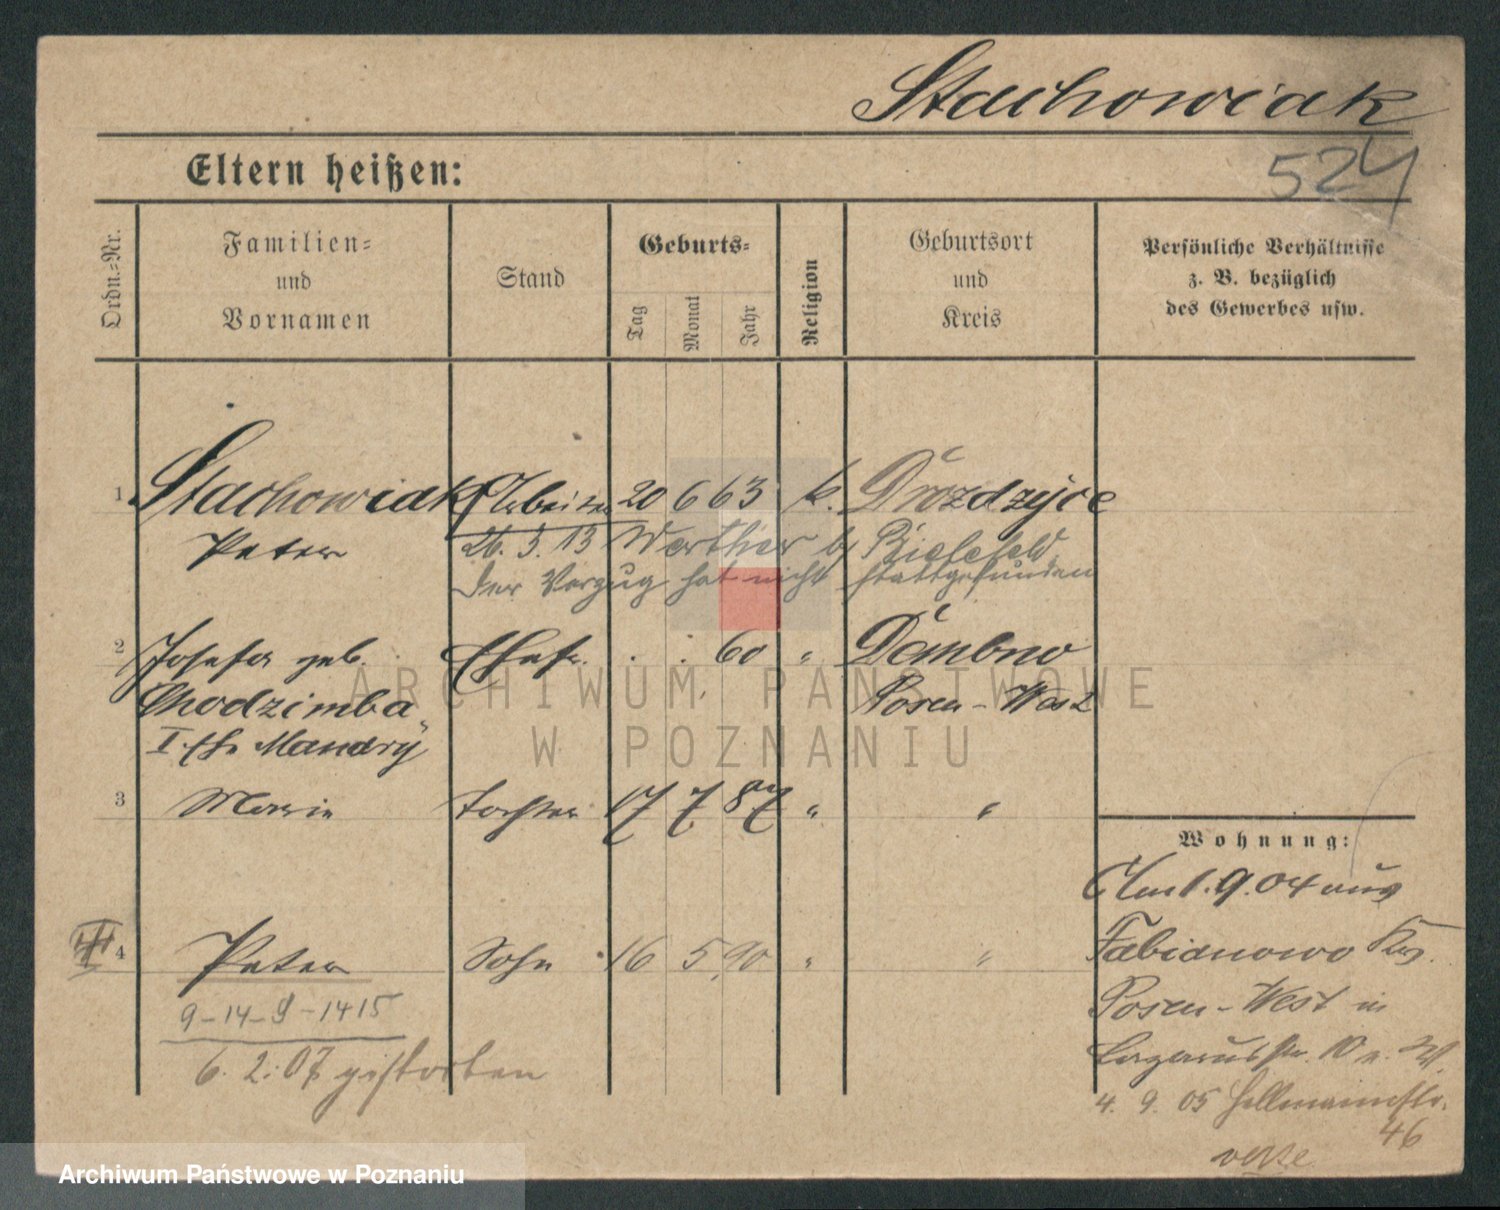 Stachowiak
524
Eltern heißen:
Ordn.-Nr.
Familien-
und
Vornamen
Stand
Geburts-
Tag
Monat
Jahr
Religion
Geburtsort
und
Kreis
Persönliche Verhältnisse
z. B. bezüglich
des Gewerbes usw.
1 Stachowiak Arbeiter 20 6 63 k. Drozdzyce
Peter
26. 3. 13 Werther b/ Bielefeld
der Verzug hat nicht stattgefunden
2 Josefa geb. Ehefr. . . 60 " Dembno
Chodzimba Posen-West
I. Eh. Mandry
3 Marie Tochter 17 7 87 " "
Wohnung:
Am 1.9.04 aus
4 Peter Sohn 16 5 90 " "
Fabianowo Krs.
9-14-9-1415
Posen-West in
6. 2. 07 gestorben
Lazarusstr. 10 n. W.
4. 9. 05 Hellmannstr.
46
ARCHIWUM PAŃSTWOWE
W POZNANIU
Archiwum Państwowe w Poznaniu